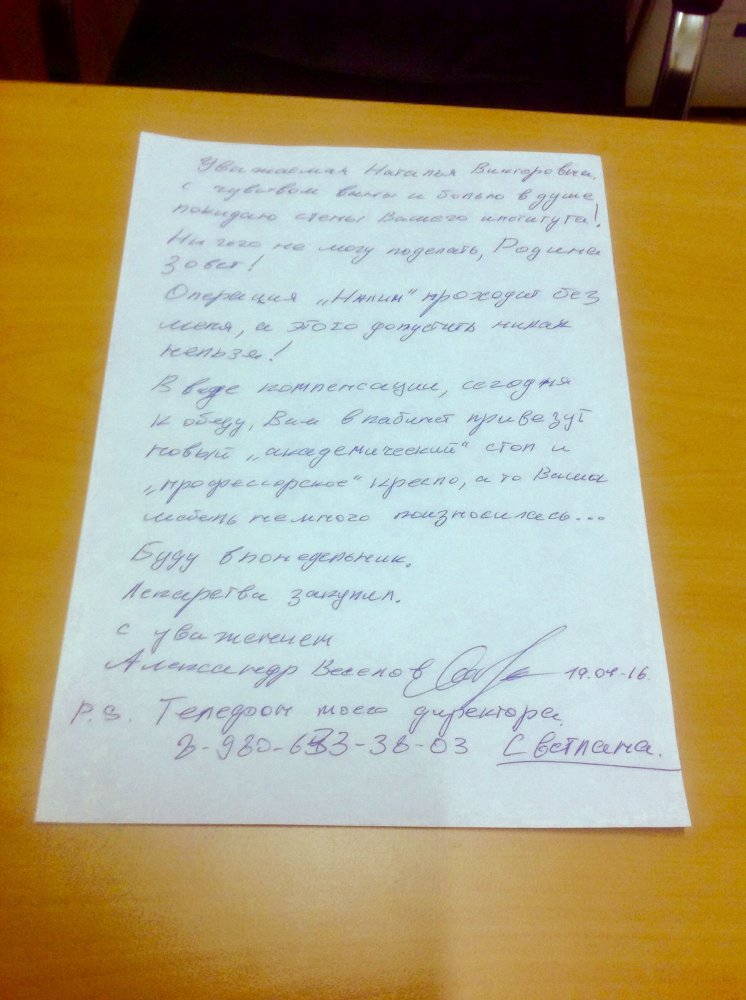 Уважаемая Наталья Викторовна,
с чувством вины и болью в душе
покидаю стены Вашего института!
Ничего не могу поделать, Родина
зовет!
Операция „Нилин" проходит без
меня, и этого допустить никак
нельзя!
В виде компенсации, сегодня
к обеду, Вам в кабинет привезут
новый „академический" стол и
„профессорское" кресло, а то Ваша
мебель немного поизносилась...
Буду в понедельник.
Лекарства закупил.
с уважением
Александр Веселов 19.04-16.
P.S. Телефон моего директора.
8-980-633-38-03 Светлана.